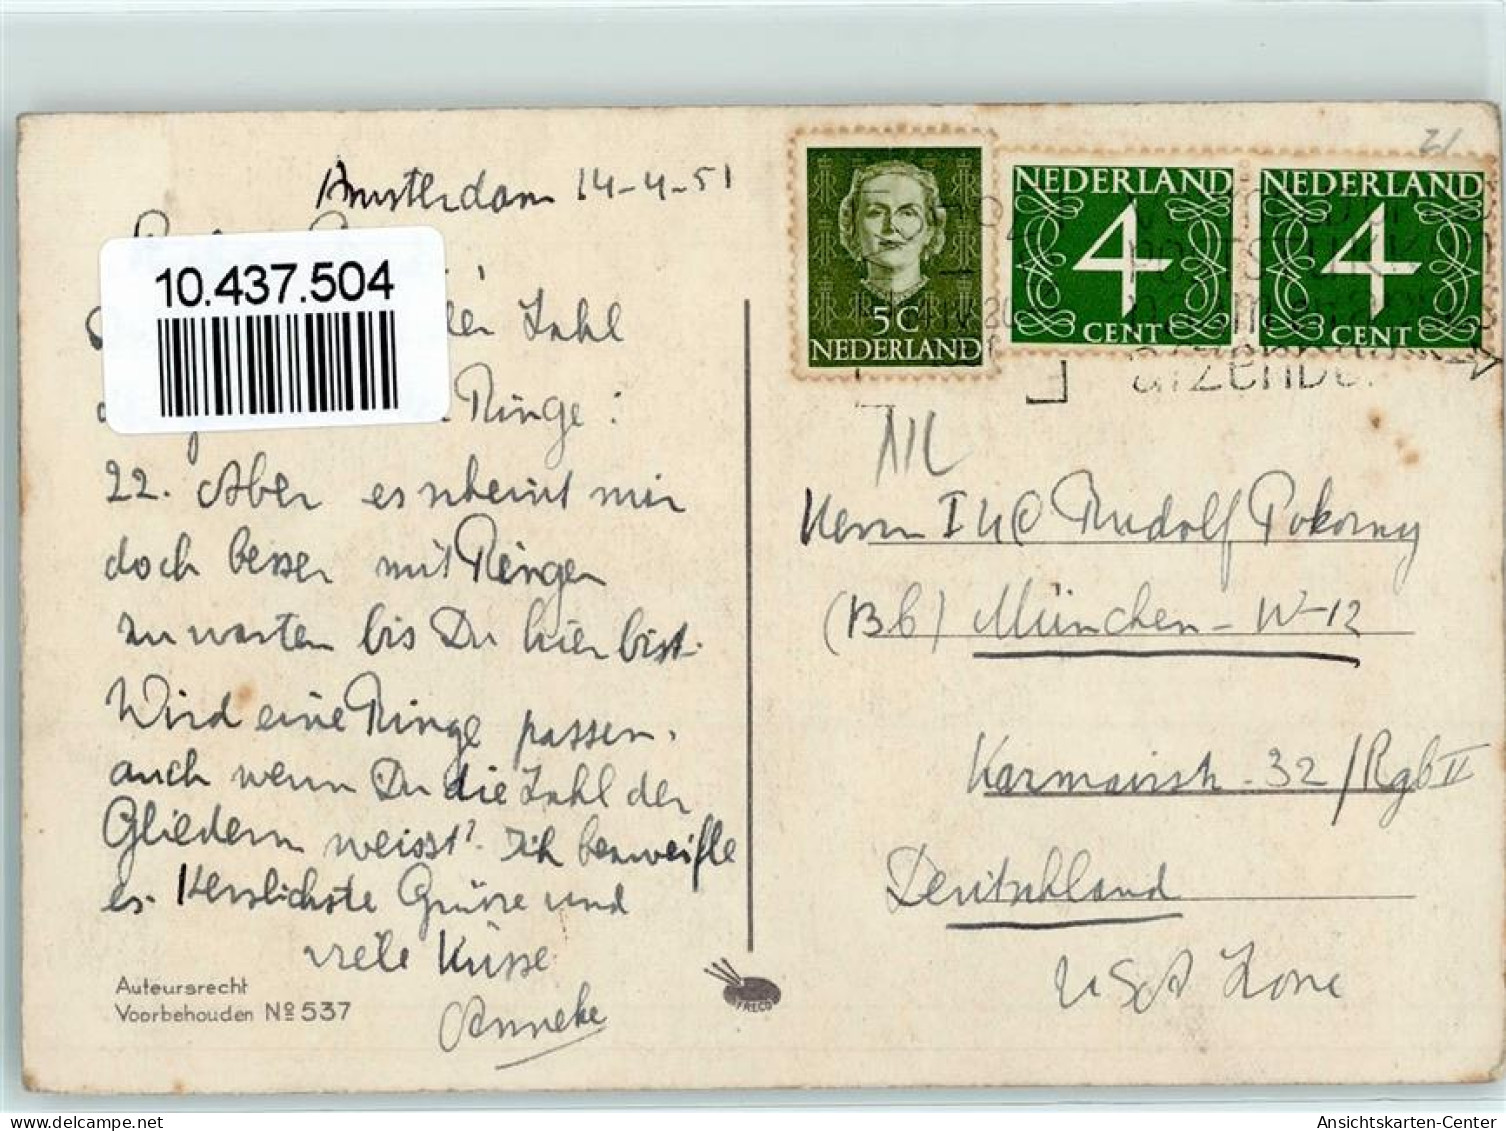 Amsterdam 14-4-51
10.437.504
Zahl
Ringe:
22. Aber es scheint mir
doch besser mit Ringen
zu warten bis Du hier bist.
Wird eine Ringe passen,
auch wenn Du die Zahl der
Gliedern weisst? Ich bezweifle
es. Herzlichste Grüsse und
viele Küsse
Anneke
Auteursrecht
Voorbehouden № 537
FRECO
5C
NEDERLAND
NEDERLAND
4
CENT
NEDERLAND
4
CENT
Herrn Rudolf Pokorny
(13b) München - W-12
32/Rgb II
Deutschland
USA Zone
Ansichtskarten-Center